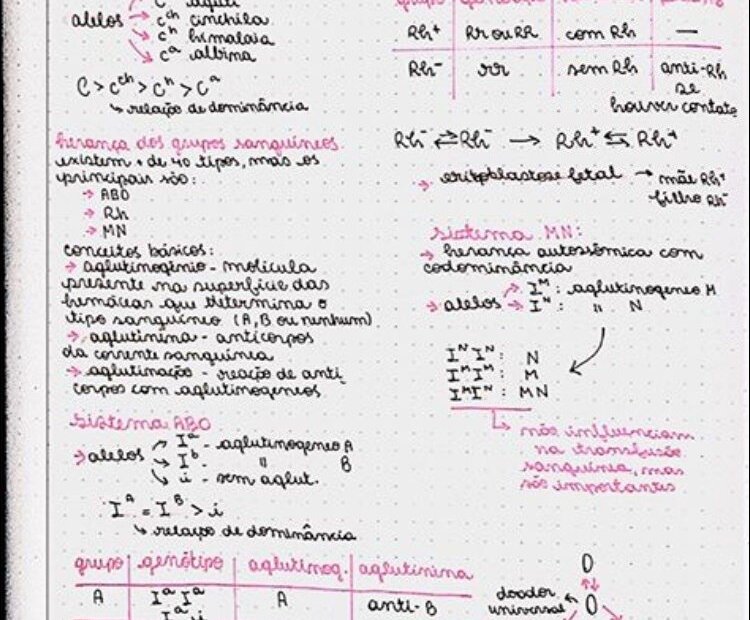 alelos
cᶜʰ cinchila
cʰ himalaia
cᵃ albina
C > cᶜʰ > cʰ > cᵃ
relação de dominância
herança dos grupos sanguíneos
existem + de 40 tipos, mas os
principais são:
→ ABO
→ Rh
→ MN
conceitos básicos:
→ aglutinogênio - molécula
presente na superfície das
hemácias que determina o
tipo sanguíneo (A, B ou nenhum)
→ aglutinina - anticorpos
da corrente sanguínea
→ aglutinação - reação de anti
corpos com aglutinogeneos
sistema ABO
→ alelos → Iᵃ - aglutinogeneo A
Iᵇ - " B
i - sem aglut.
Iᴬ = Iᴮ > i
relação de dominância
grupo genótipo aglutinog. aglutinina
A IᵃIᵃ A anti-B
Iᵃi
Rh⁺ Rr ou RR com Rh —
Rh⁻ rr sem Rh anti-Rh
se
houver contato
Rh⁻ ⇄ Rh⁻ → Rh⁺ ⇆ Rh⁺
→ eritoblastose fetal → mãe Rh⁺
filho Rh⁻
sistema MN:
→ herança autossômica com
codominância
→ alelos → Iᴹ: aglutinogeneo M
→ Iᴺ: " N
IᴺIᴺ: N
IᴹIᴹ: M
IᴹIᴺ: MN
não influenciam
na transfusão
sanguínea, mas
são importantes
O
doador
universal O